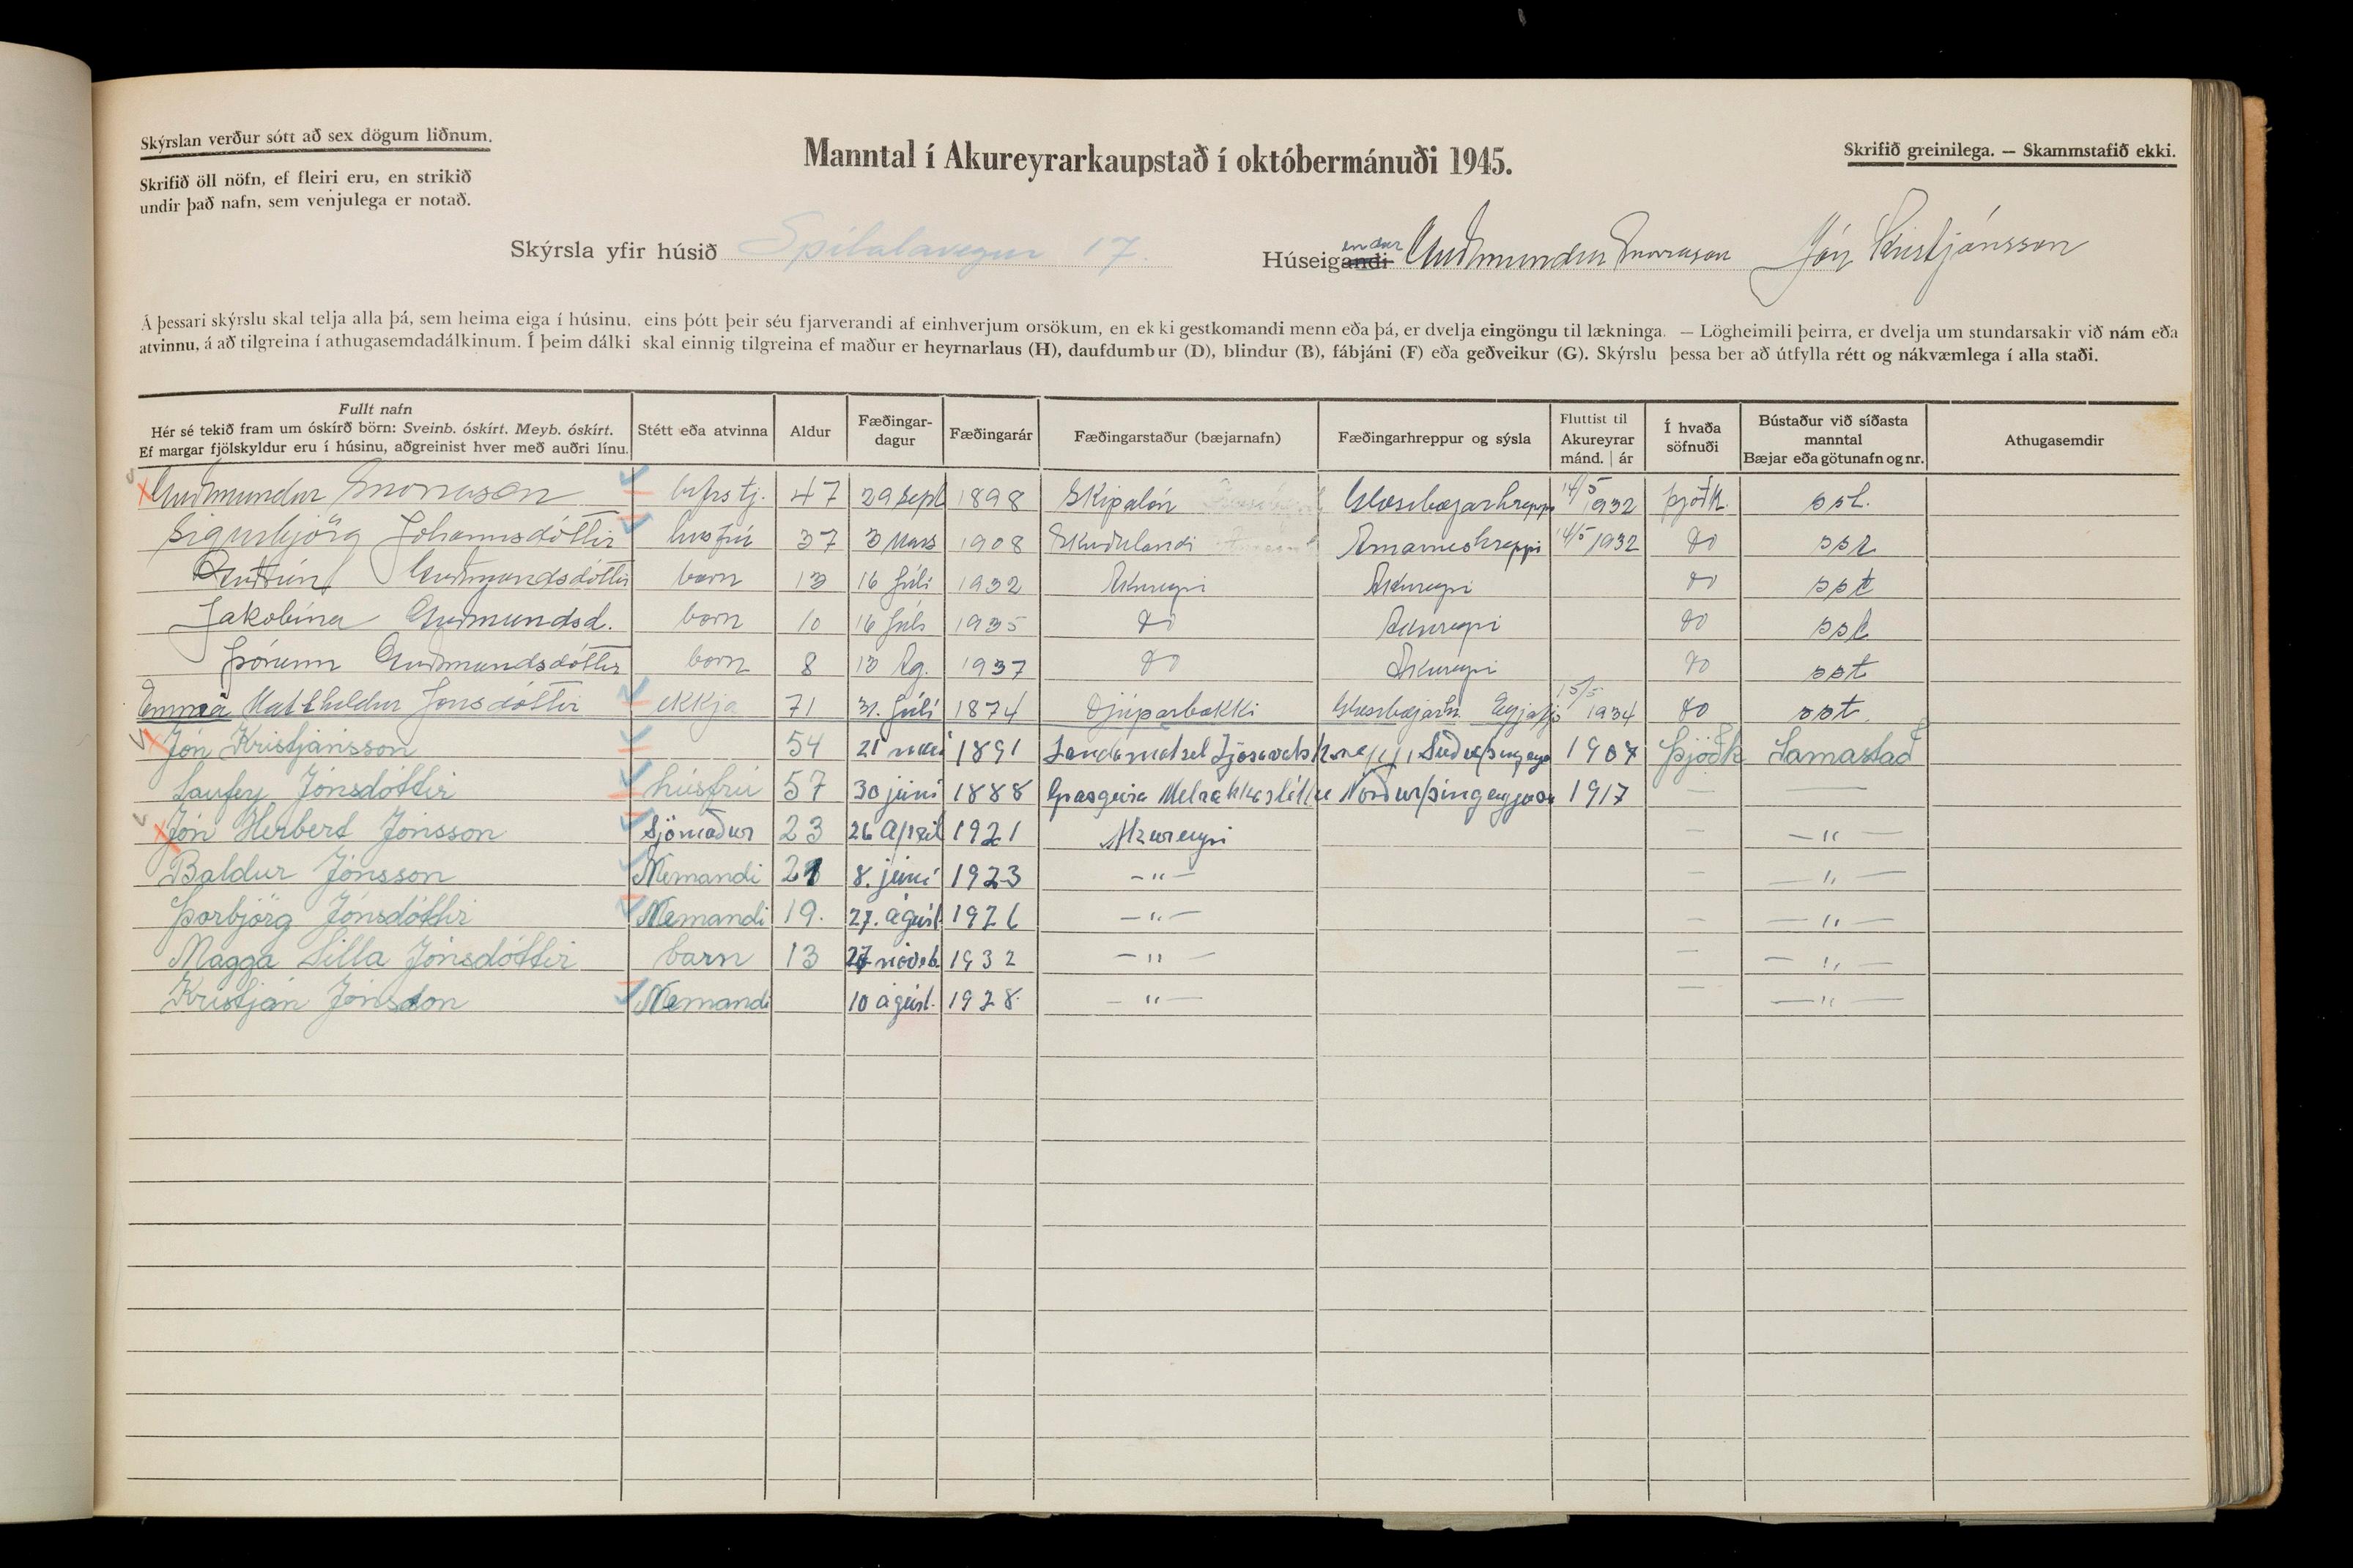 Skýrslan verður sótt að sex dögum liðnum.
Skrifið öll nöfn, ef fleiri eru, en strikið
undir það nafn, sem venjulega er notað.
Manntal í Akureyrarkaupstað í októbermánuði 1945.
Skrifið greinilega. — Skammstafið ekki.
Skýrsla yfir húsið Spítalavegur 17. Húseigandi endur Guðmundur Snorrason Jón Kristjánsson
Á þessari skýrslu skal telja alla þá, sem heima eiga í húsinu, eins þótt þeir séu fjarverandi af einhverjum orsökum, en ekki gestkomandi menn eða þá, er dvelja eingöngu til lækninga. — Lögheimili þeirra, er dvelja um stundarsakir við nám eða
atvinnu, á að tilgreina í athugasemdadálkinum. Í þeim dálki skal einnig tilgreina ef maður er heyrnarlaus (H), daufdumbur (D), blindur (B), fábjáni (F) eða geðveikur (G). Skýrslu þessa ber að útfylla rétt og nákvæmlega í alla staði.
Fullt nafn
Hér sé tekið fram um óskírð börn: Sveinb. óskírt. Meyb. óskírt.
Ef margar fjölskyldur eru í húsinu, aðgreinist hver með auðri línu.
Stétt eða atvinna
Aldur
Fæðingar-
dagur
Fæðingarár
Fæðingarstaður (bæjarnafn)
Fæðingarhreppur og sýsla
Fluttist til
Akureyrar
mánd. | ár
Í hvaða
söfnuði
Bústaður við síðasta
manntal
Bæjar eða götunafn og nr.
Athugasemdir
Guðmundur Snorrason 47 29 Sept 1898 Skipalón Glæsibæjarhreppi 14/5 1932 þjóðk. sst.
Sigurbjörg Jóhannsdóttir húsfrú 37 3 Mars 1908 Skuðulandi Arnarneshreppi 14/5 1932 do sst
Guðrún Guðmundsdóttir barn 13 16 Júlí 1932 Akureyri Akureyri do sst
Jakobína Guðmundsd. barn 10 16 Júlí 1935 do Akureyri do sst
Þórunn Guðmundsdóttir barn 8 13 Ág. 1937 do Akureyri do sst
Emma Matthildur Jónsdóttir ekkja 71 31. Júlí 1874 Djúparbakki Glæsibæjarh. Eyjafj 15/5 1934 do sst
Jón Kristjánsson 54 21 1891 Landamótsel Ljósavatshreppi Suðurþingeyja 1907 Þjóðk Samastað
Laufey Jónsdóttir húsfrú 57 30 júní 1888 Grasgeira Melrakkasléttu Norðurþingeyjarsý 1917 — —
Jón Herbert Jónsson Sjómaður 23 26 Apríl 1921 Akureyri — —"—
Baldur Jónsson Nemandi 21 8. júní 1923 —"— — —"—
Þorbjörg Jónsdóttir Nemandi 19. 27. ágúst 1926 —"— — —"—
Magga Silla Jónsdóttir barn 13 27 nóvb. 1932 —"— — —"—
Kristján Jónsson Nemandi 10 ágúst. 1928. —"— — —"—